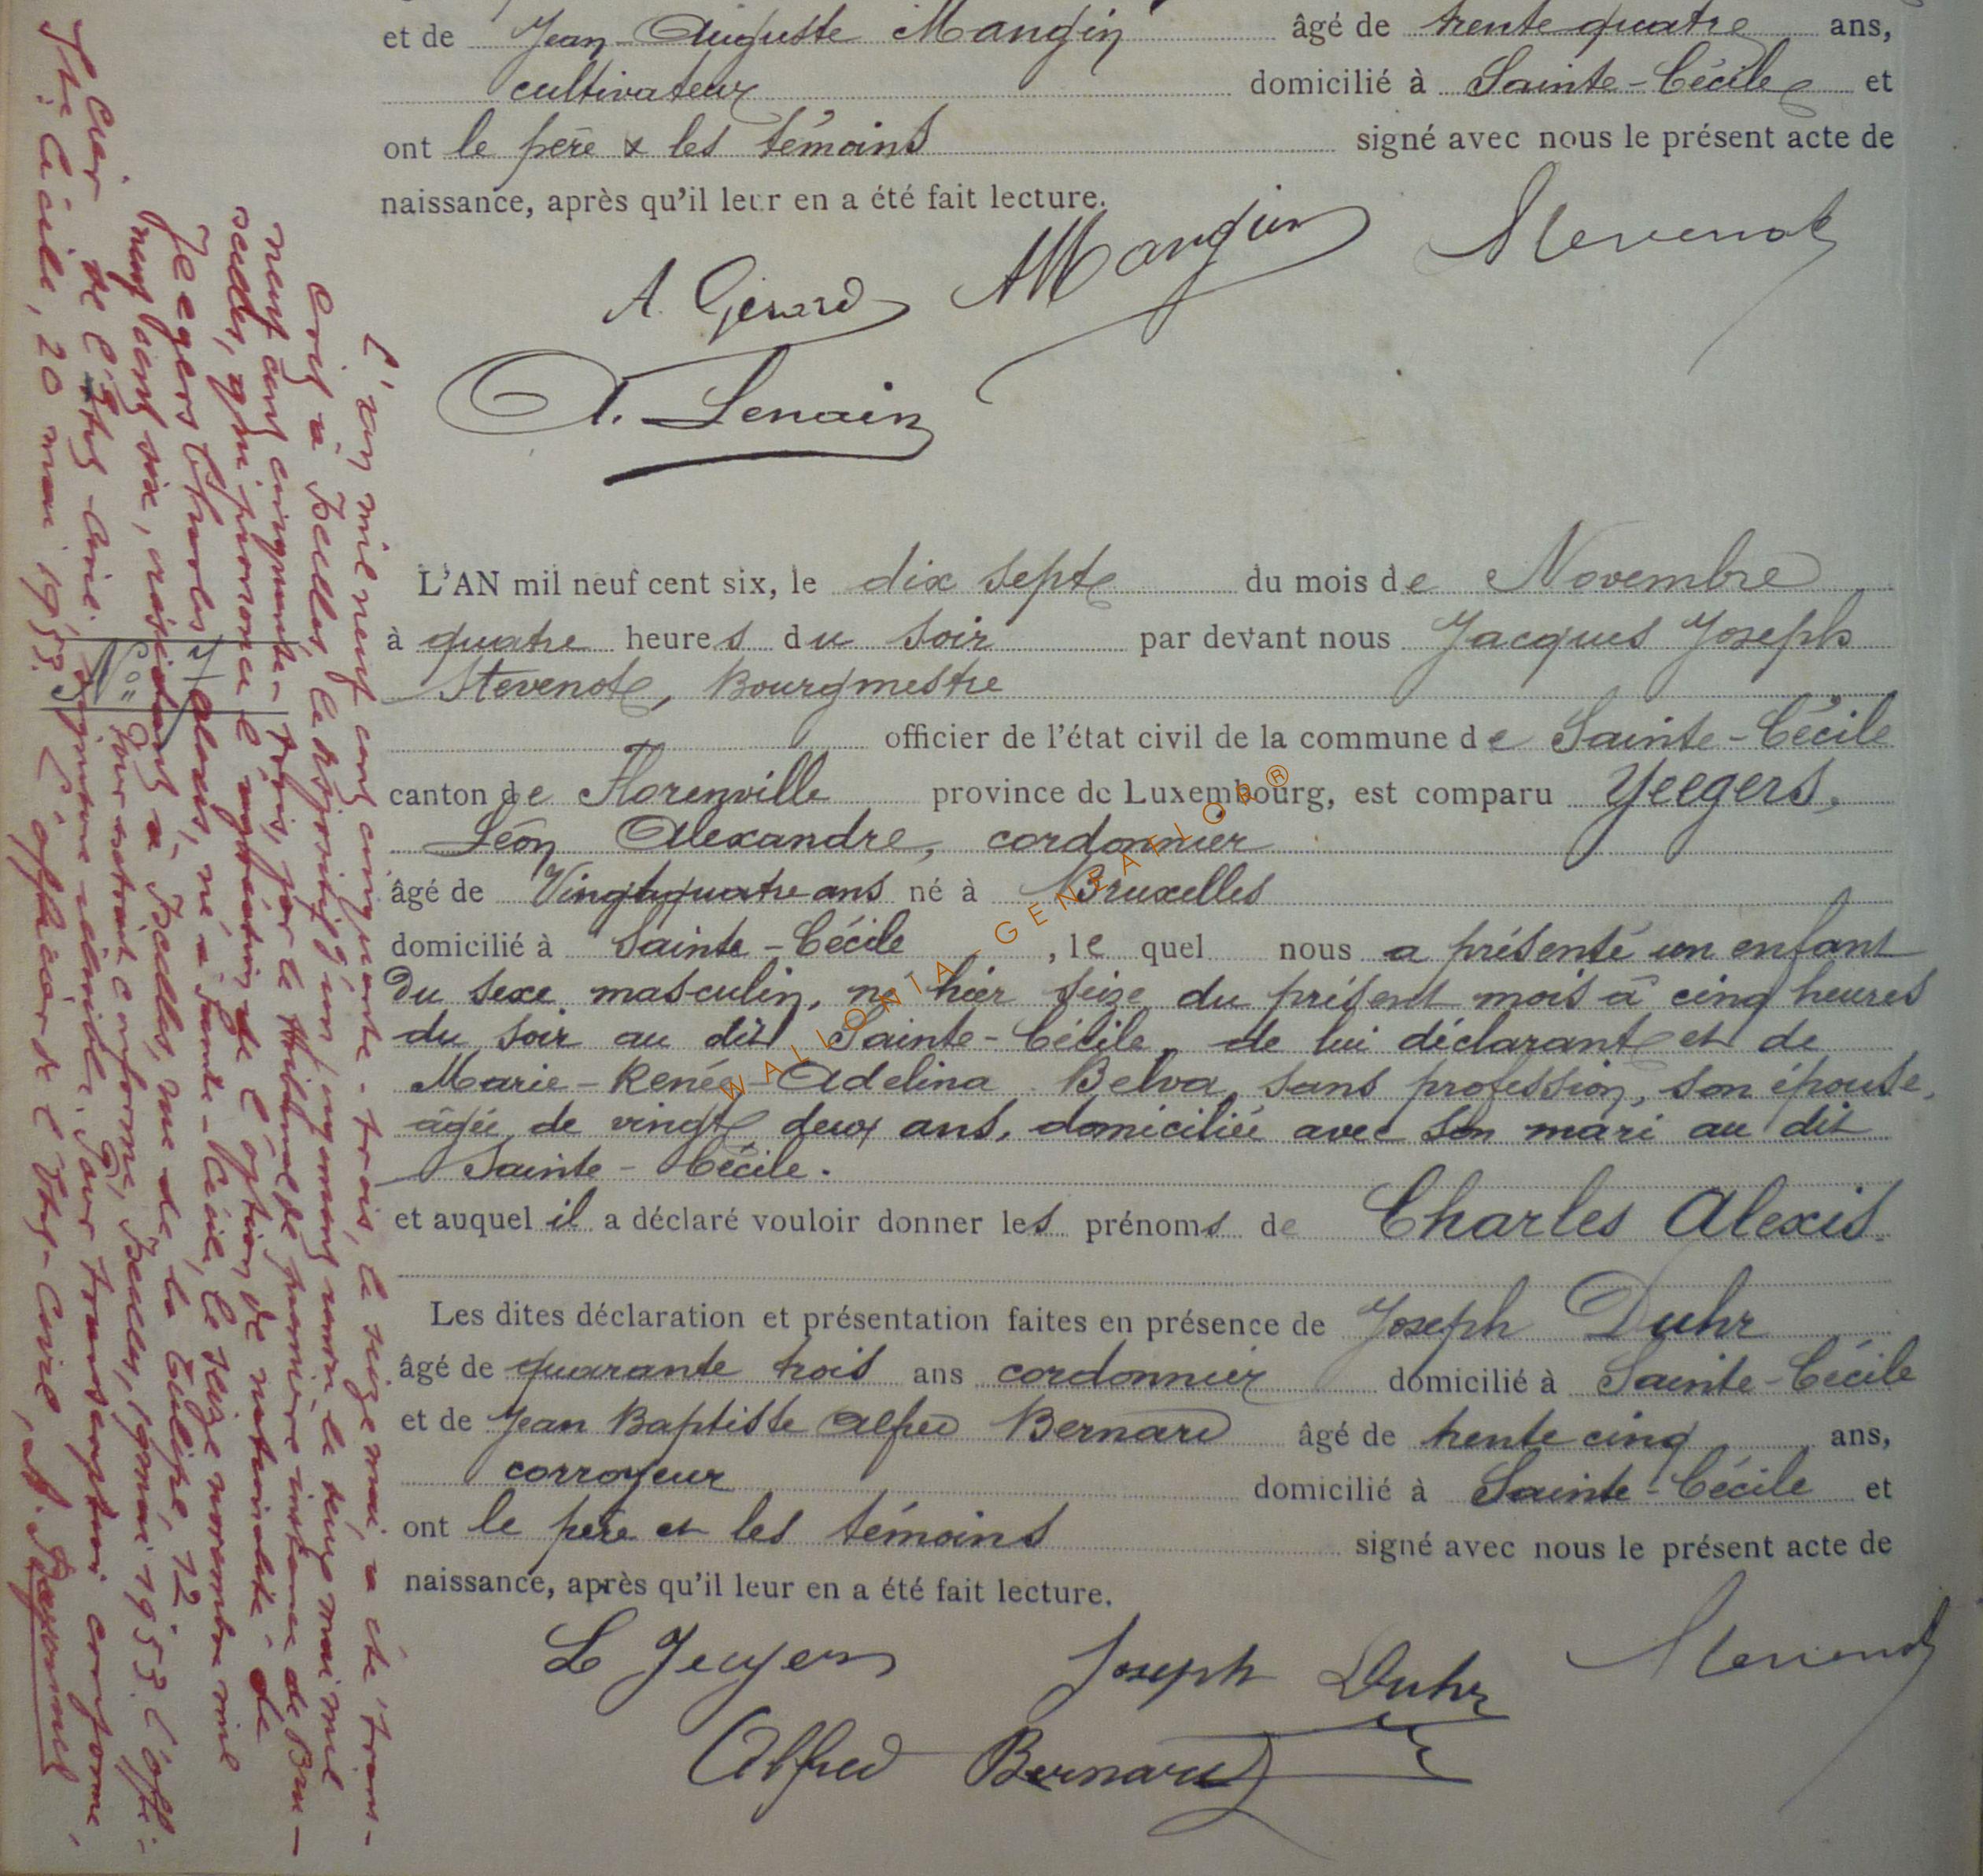 et de Jean-Auguste Mangin âgé de trente quatre ans,
cultivateur domicilié à Sainte-Cécile et
ont le père & les témoins signé avec nous le présent acte de
naissance, après qu'il leur en a été fait lecture.
A. Gérard AMangin Stevenot
A. Lenain
L'AN mil neuf cent six, le dix sept du mois de Novembre
à quatre heures du soir par devant nous Jacques Joseph
Stevenot, Bourgmestre
officier de l'état civil de la commune de Sainte-Cécile
canton de Florenville province de Luxembourg, est comparu Yeegers,
Léon Alexandre, cordonnier
âgé de Vingtquatre ans né à Bruxelles
domicilié à Sainte-Cécile, le quel nous a présenté un enfant
du sexe masculin, né hier seize du présent mois à cinq heures
du soir au dit Sainte-Cécile, de lui déclarant et de
Marie-Renée-Adelina Belva, sans profession, son épouse,
âgée de vingt deux ans, domiciliée avec son mari au dit
Sainte-Cécile.
et auquel il a déclaré vouloir donner les prénoms de Charles Alexis
Les dites déclaration et présentation faites en présence de Joseph Duhr
âgé de quarante trois ans cordonnier domicilié à Sainte-Cécile
et de Jean Baptiste Alfred Bernard âgé de trente cinq ans,
corroyeur domicilié à Sainte-Cécile et
ont le père et les témoins signé avec nous le présent acte de
naissance, après qu'il leur en a été fait lecture.
L Jeegers Joseph Duhr Stevenot
Alfred Bernard
N° 7
L'an mil neuf cent cinquante-trois, le seize mai, a été trans-
crit à Ixelles le dispositif d'un jugement rendu le seize mai mil
neuf cent cinquante-trois, par le tribunal de première instance de Bru-
xelles, qui prononce l'agréation de l'option de nationalité de
Jeegers Charles Alexis, né à Sainte-Cécile, le seize novembre mil
neuf cent six, résidant à Ixelles, rue de la Tulipe, 12.
Pour extrait conforme, Ixelles, 19 mai 1953. L'offi-
cier de l'Etat-Civil, signature illisible. Pour transcription conforme,
Ste Cécile, 20 mai 1953. L'officier de l'Etat-Civil,
WALLONIA-GENEAFLOR®